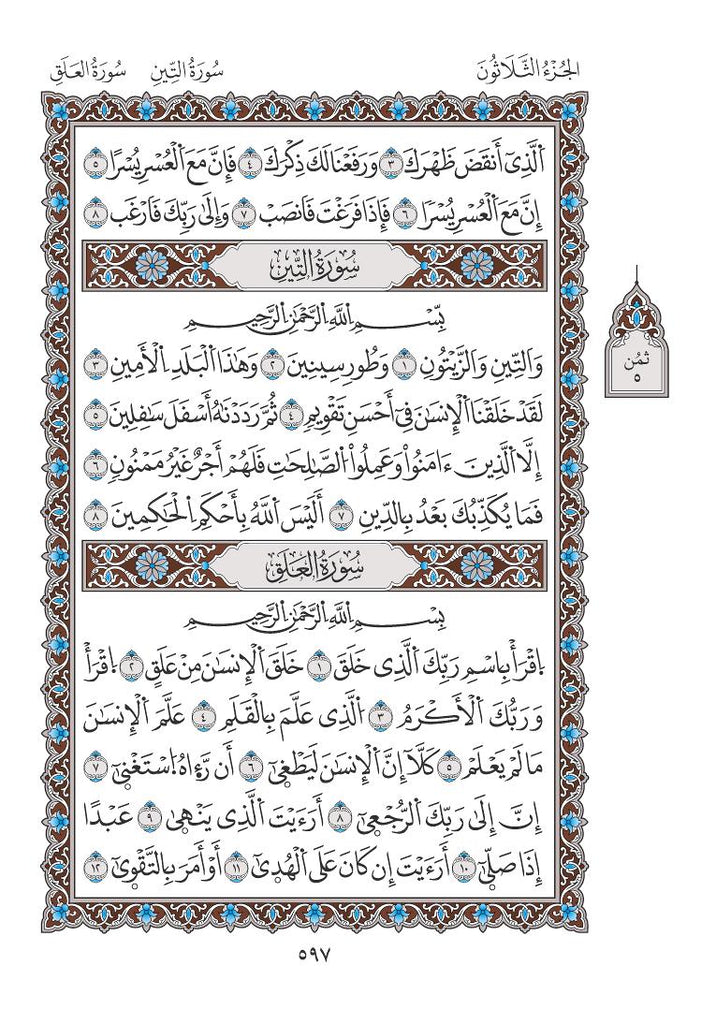 الجُزْءُ الثَّلَاثُونَ سُورَةُ التِّينِ سُورَةُ العَلَقِ
اَ۬لذِےٓ أَنقَضَ ظَهْرَكَ ٣ وَرَفَعْنَا لَكَ ذِكْرَكَ ٤ فَإِنَّ مَعَ اَ۬لْعُسْرِ يُسْراً ٥
إِنَّ مَعَ اَ۬لْعُسْرِ يُسْراٗ ٦ فَإِذَا فَرَغْتَ فَانصَبْ ٧ وَإِلَىٰ رَبِّكَ فَارْغَب ٨
سُورَةُ التِّينِ
بِسْمِ اِ۬للَّهِ اِ۬لرَّحْمَٰنِ اِ۬لرَّحِيمِ
وَالتِّينِ وَالزَّيْتُونِ ١ وَطُورِ سِينِينَ ٢ وَهَٰذَا اَ۬لْبَلَدِ اِ۬لْأَمِينِ ٣
لَقَدْ خَلَقْنَا اَ۬لْإِنسَٰنَ فِےٓ أَحْسَنِ تَقْوِيمٖ ٤ ثُمَّ رَدَدْنَٰهُ أَسْفَلَ سَٰفِلِينَ ٥
إِلَّا اَ۬لذِينَ ءَامَنُواْ وَعَمِلُواْ اُ۬لصَّٰلِحَٰتِ فَلَهُمْ أَجْرٌ غَيْرُ مَمْنُونٖ ٦
فَمَا يُكَذِّبُكَ بَعْدُ بِالدِّينِ ٧ أَلَيْسَ اَ۬للَّهُ بِأَحْكَمِ اِ۬لْحَٰكِمِينَ ٨
ثُمُن
٥
سُورَةُ العَلَقِ
بِسْمِ اِ۬للَّهِ اِ۬لرَّحْمَٰنِ اِ۬لرَّحِيمِ
اِ۪قْرَأْ بِاسْمِ رَبِّكَ اَ۬لذِے خَلَقَ ١ خَلَقَ اَ۬لْإِنسَٰنَ مِنْ عَلَقٍ ٢ اِ۪قْرَأْ
وَرَبُّكَ اَ۬لْأَكْرَمُ ٣ اُ۬لذِے عَلَّمَ بِالْقَلَمِ ٤ عَلَّمَ اَ۬لْإِنسَٰنَ
مَا لَمْ يَعْلَمْ ٥ كَلَّا إِنَّ اَ۬لْإِنسَٰنَ لَيَطْغَىٰٓ ٦ أَن رَّءَاهُ اُ۪سْتَغْنَىٰٓ ٧
إِنَّ إِلَىٰ رَبِّكَ اَ۬لرُّجْعَىٰٓ ٨ أَرَءَيْتَ اَ۬لذِے يَنْهَىٰ ٩ عَبْداً
إِذَا صَلَّىٰٓ ١٠ أَرَءَيْتَ إِن كَانَ عَلَى اَ۬لْهُدَىٰٓ ١١ أَوْ أَمَرَ بِالتَّقْوَىٰٓ ١٢
٥٩٧